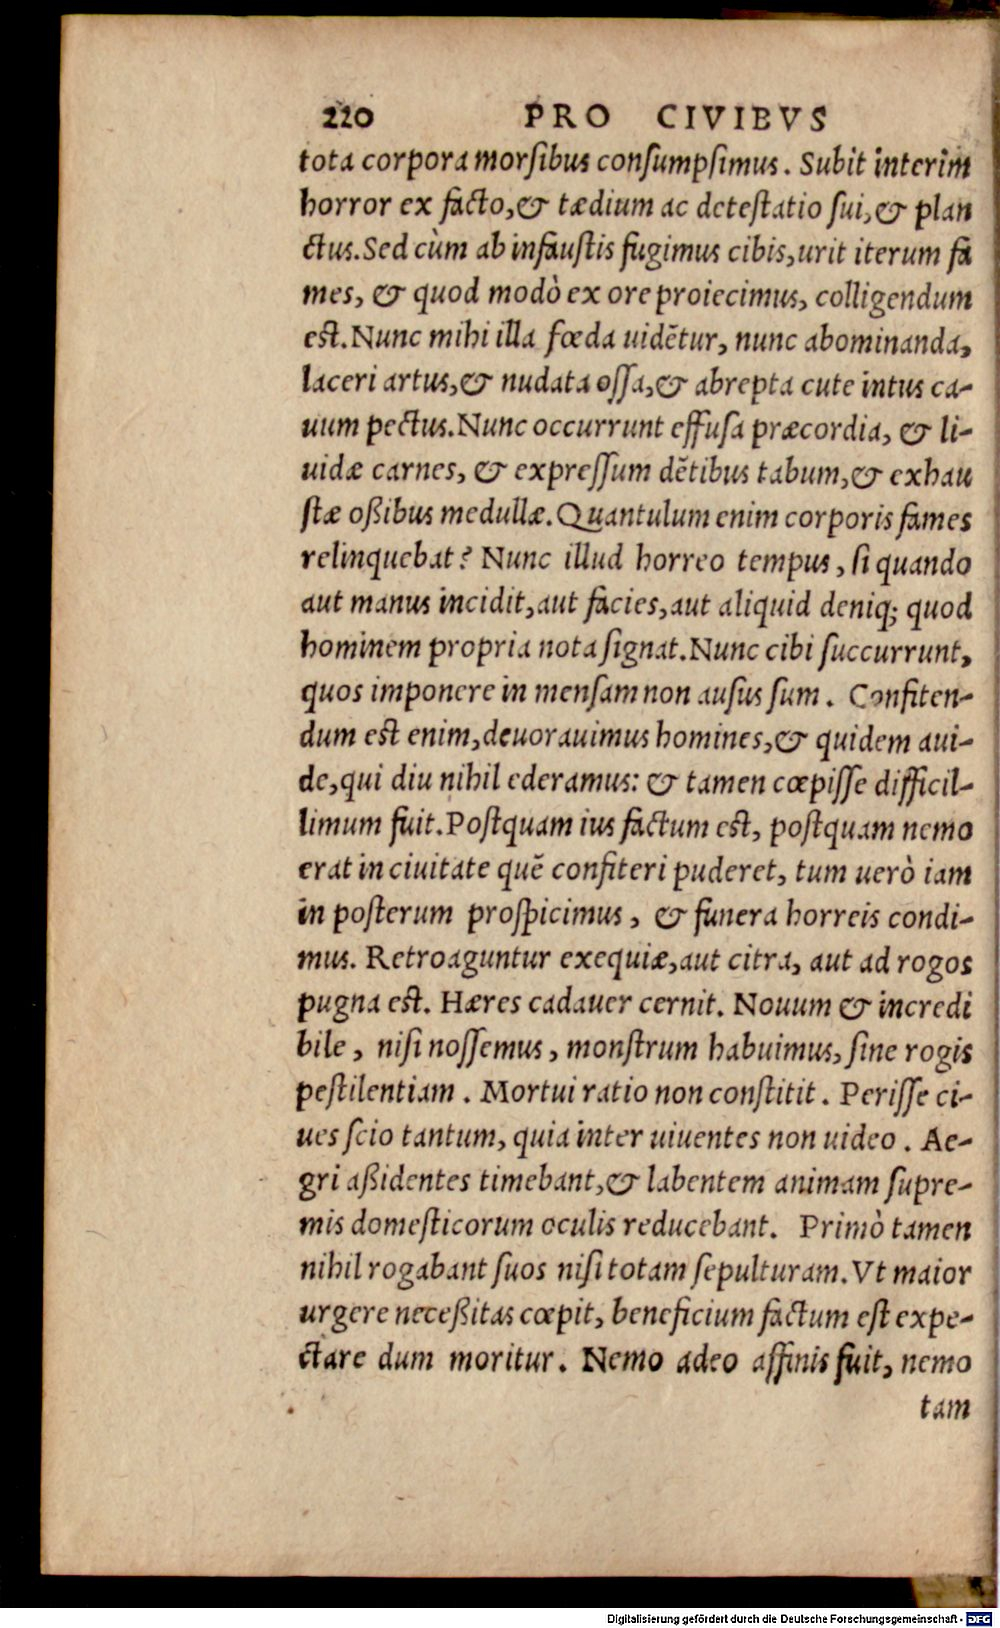 220 PRO CIVIBVS
tota corpora morſibus conſumpſimus. Subit interim
horror ex facto, & tædium ac deteſtatio ſui, & plan
ctus. Sed cùm ab infauſtis fugimus cibis, urit iterum fa
mes, & quod modò ex ore proiecimus, colligendum
eſt. Nunc mihi illa fœda uidẽtur, nunc abominanda,
laceri artus, & nudata oſſa, & abrepta cute intus ca-
uum pectus. Nunc occurrunt effuſa præcordia, & li-
uidæ carnes, & expreſſum dẽtibus tabum, & exhau
ſtæ oßibus medullæ. Quantulum enim corporis fames
relinquebat? Nunc illud horreo tempus, ſi quando
aut manus incidit, aut facies, aut aliquid deniq; quod
hominem propria nota ſignat. Nunc cibi ſuccurrunt,
quos imponere in menſam non auſus ſum. Confiten-
dum eſt enim, deuorauimus homines, & quidem aui-
de, qui diu nihil ederamus: & tamen cœpiſſe difficil-
limum fuit. Poſtquam ius factum eſt, poſtquam nemo
erat in ciuitate quẽ confiteri puderet, tum uerò iam
in poſterum proſpicimus, & funera horreis condi-
mus. Retroaguntur exequiæ, aut citra, aut ad rogos
pugna eſt. Hæres cadauer cernit. Nouum & incredi
bile, niſi noſſemus, monſtrum habuimus, ſine rogis
peſtilentiam. Mortui ratio non conſtitit. Periſſe ci-
ues ſcio tantum, quia inter uiuentes non uideo. Ae-
gri aßidentes timebant, & labentem animam ſupre-
mis domeſticorum oculis reducebant. Primò tamen
nihil rogabant ſuos niſi totam ſepulturam. Vt maior
urgere neceßitas cœpit, beneficium factum eſt expe-
ctare dum moritur. Nemo adeo affinis fuit, nemo
tam
Digitalisierung gefördert durch die Deutsche Forschungsgemeinschaft - DFG